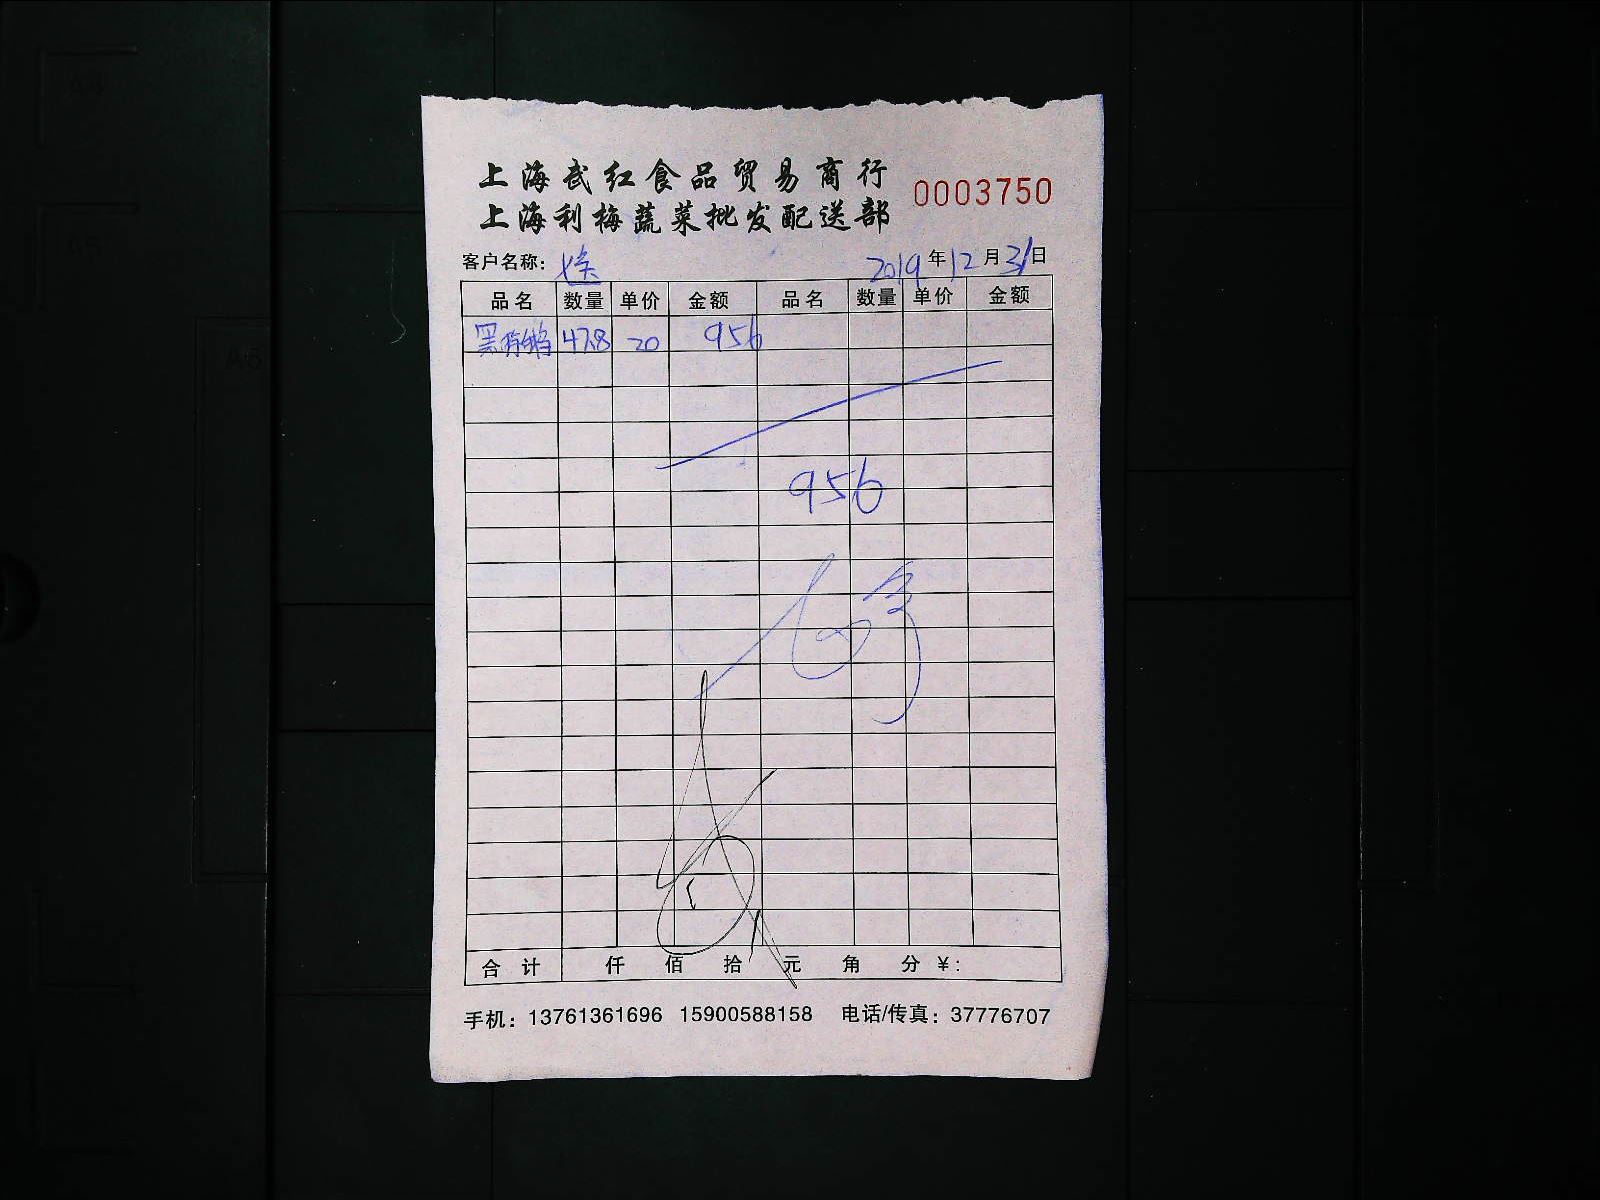 上海武红食品贸易商行
0003750
上海利梅蔬菜批发配送部
客户名称：
2019年12月31日
品名 数量 单价 金额 品名 数量 单价 金额
47.8 20 956
956
合计 仟 佰 拾 元 角 分 ¥：
手机：13761361696 15900588158 电话/传真：37776707